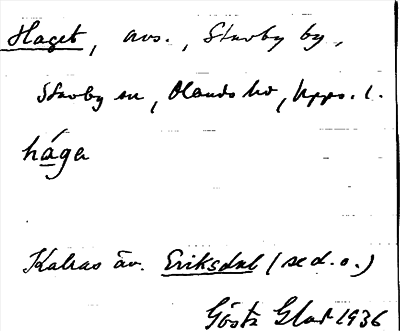 Haget, avs., Stavby by,
Stavby sn, Olands hd, Upps. l.
håga
Kallas äv. Eriksdal (se d. o.)
Gösta Glad 1936